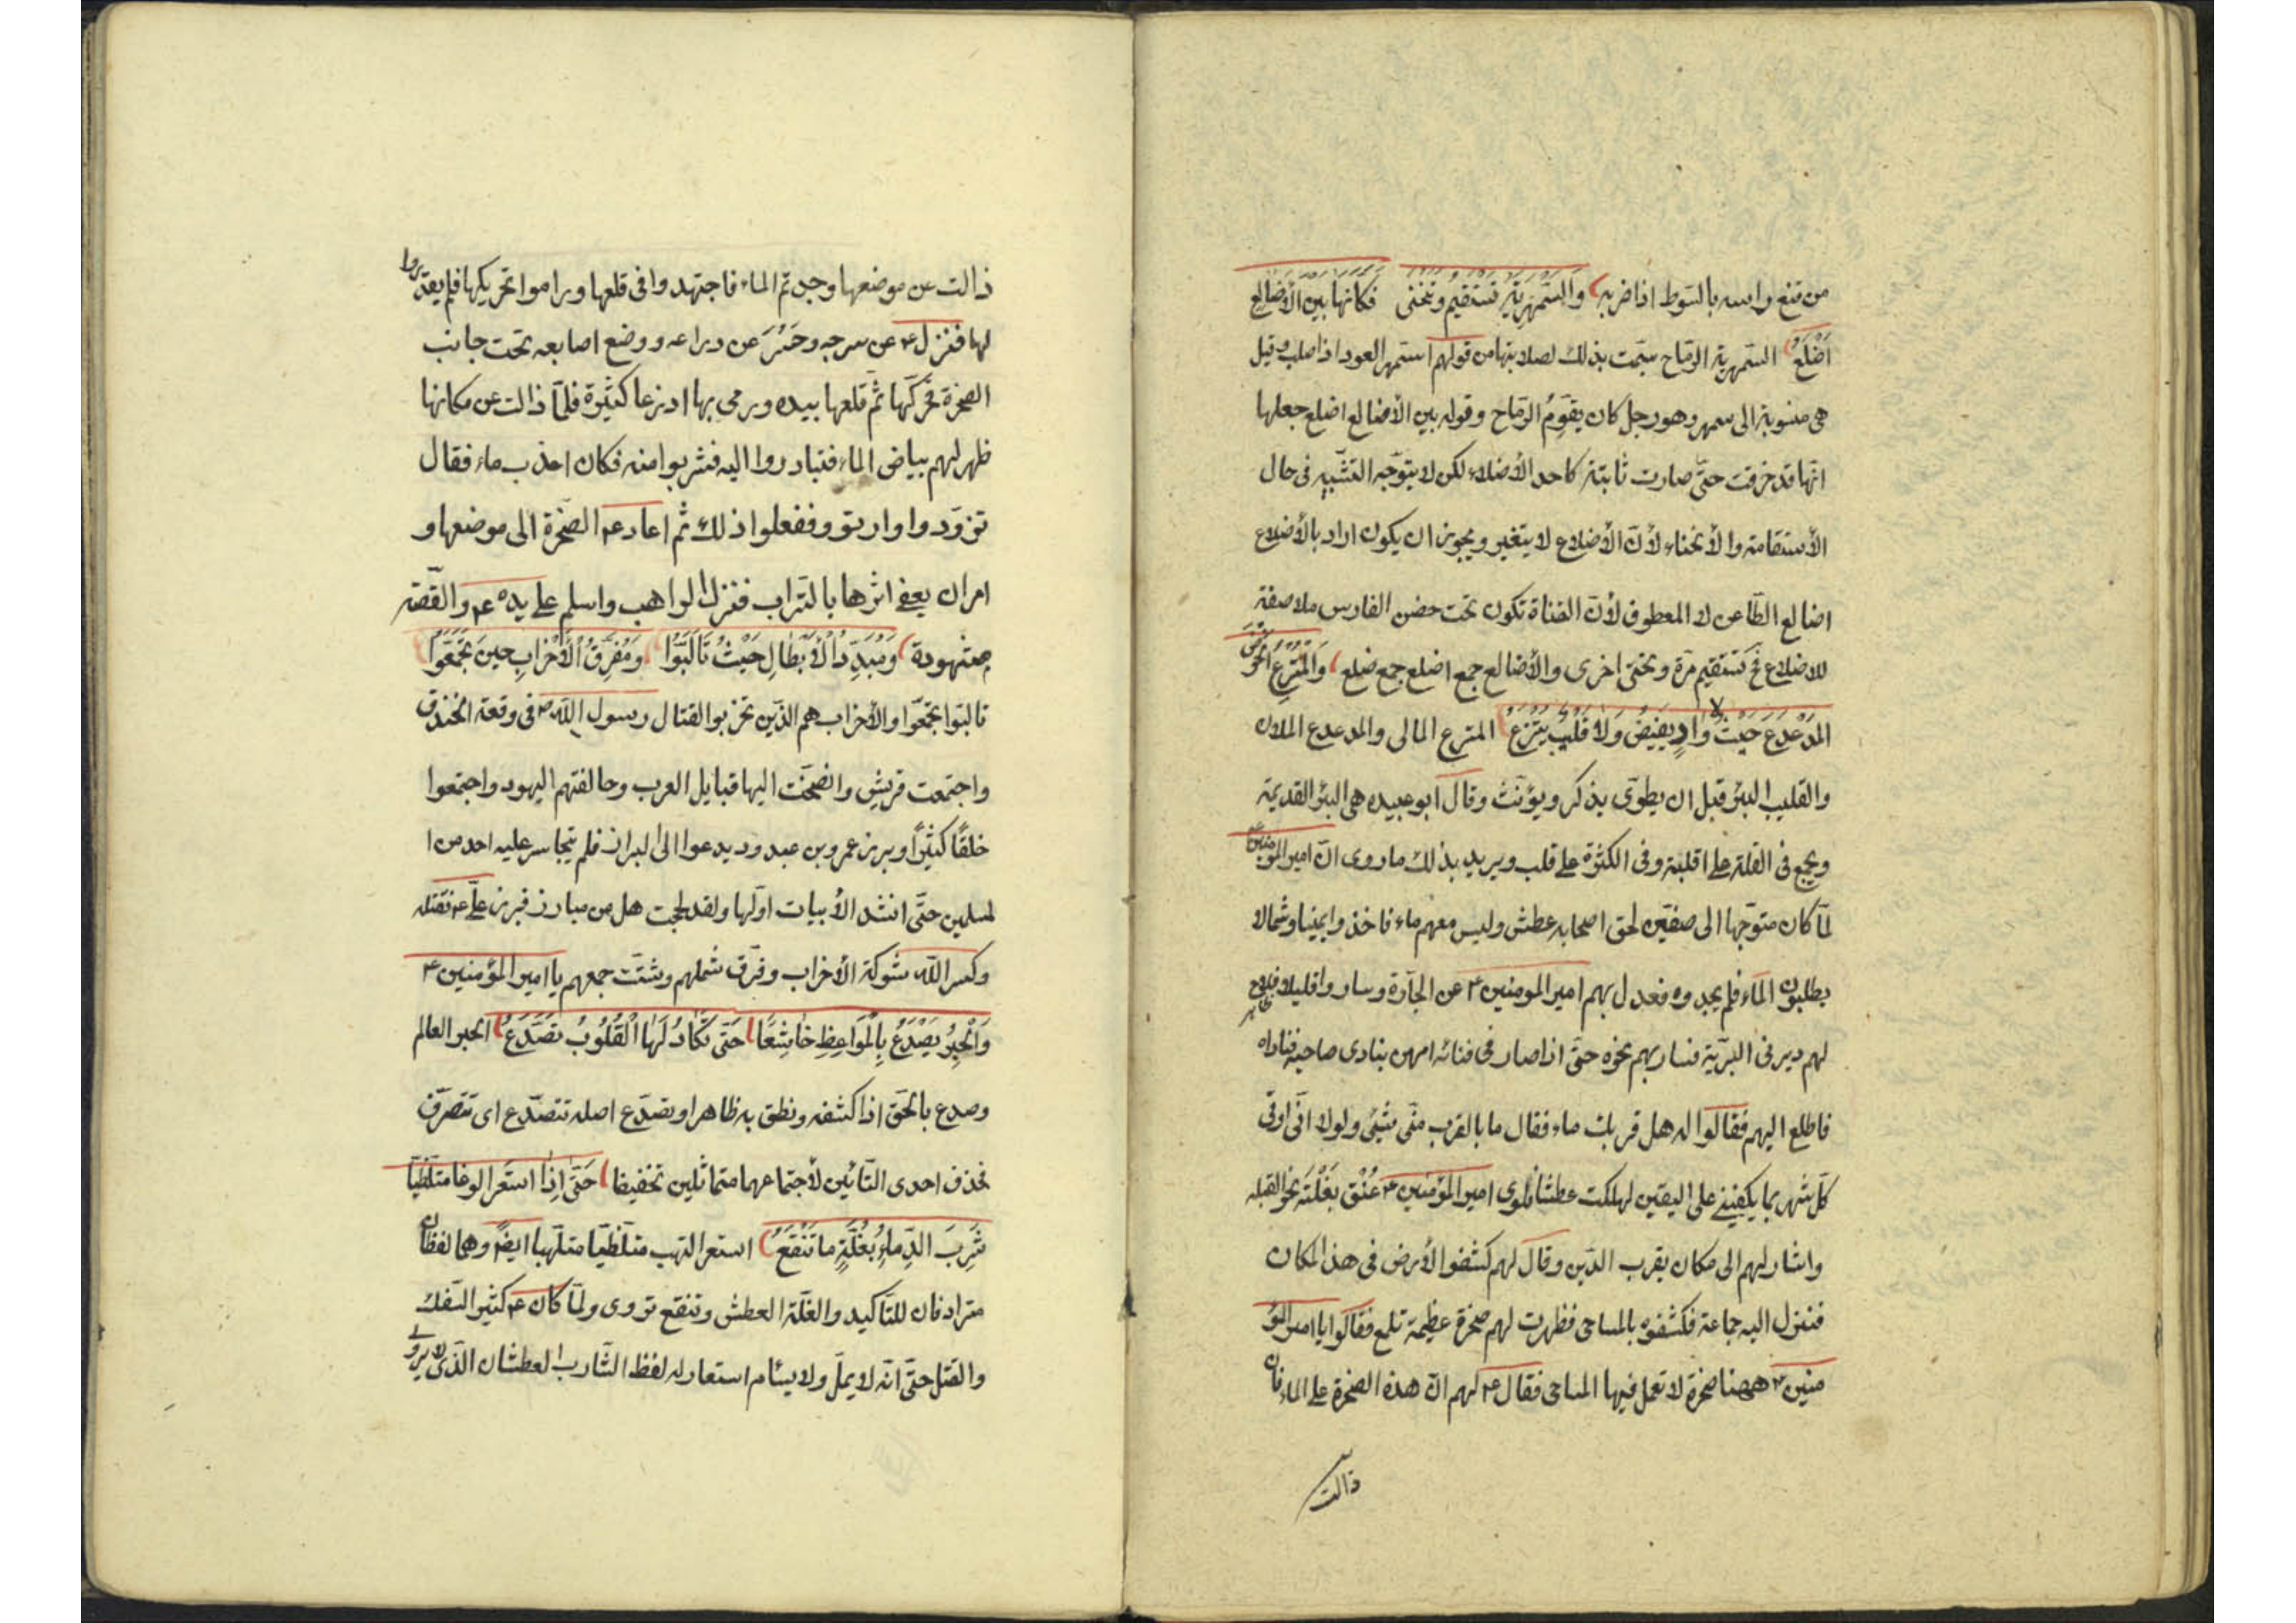 من قنع راسه بالسّوط اذا ضربه وَالسَّمْهَرِيَّة تَسْتَقيمُ وتَنحَنى فكَانَها بَين الأَضَالِع
اَضْلَعُ السّمهرية الرّماح سمّت بذلك لصلابتها من قولهم اسمهر العود اذا صلب وقيل
هى منسوبة الى سمهر وهو رجل كان يقوّمُ الرّماح وقوله بين الأضالع اضلع جعلها
انّها قد خرقت حتّى صارت ثابتة كاحد الأضلاع لكن لا يتوجّه التشّبيه فى حال
الأستقامة والأنحناء لأنّ الأضلاع لا يتغير ويجوز ان يكون اراد بالأضلاع
اضالع الطّاعن لا المعطوف لأنّ القناة تكون تحت حضن الفارس ملاصقة
للاضلاع فح تستقيم مرّة وتحنى اخرى والأضالع جمع اضلع جمع ضلع وَالمُترِعُ الحَوْضَ
المدَعْدَعَ حَيْثُ لا وادٍ يفيضُ وَلا قَليبٌ يَترَعُ المترع المالى والمدعدع الملان
والقليب البئر قبل ان يطوّى يذكر ويؤنّث وقال ابو عبيده هى البئر القديمة
ويجمع فى القلة على اقلبة وفى الكثرة على قلب ويريد بذلك ما روى انّ امير المؤمنين ع
لمّا كان متوّجها الى صفيّن لحق اصحابه عطش وليس معهم ماء فاخذوا يمينا وشمالا
يطلبون الماء فلم يجدوه فعدل بهم امير المومنين ع عن الجادّة وساروا قليلا فلاح
لهم دير فى البرّية فسار بهم نحوه حتّى اذا صار فى فنائه امر من ينادى صاحبه فناداه
فاطلع اليهم فقالوا له هل قربك ماء فقال ما بالقرب منّى شيئ ولولا انّى اوتى
كلّ شهر بما يكفينى على اليقين لهلكت عطشا فلوى امير المؤمنين ع عُنْق بَغْلَته نحو القبله
واشار لهم الى مكان بقرب الدّير وقال لهم كشفوا الأرض فى هذا المكان
فنزل اليه جماعة فكشفوه بالمساحى فظهرت لهم صخرة عظيمة تلمع فقالوا يا امير المؤ
منين ع ههنا صخرة لا تعمل فيها المساحى فقال ع لهم انّ هذه الصخرة على الماء فان
ذالت
ذالت عن موضعها وجدتم الماء فاجتهدوا فى قلعها وراموا تحريكها فلم يقدروا
لها فنزل ع عن سرجه وحَسَرَ عن ذراعه ووضع اصابعه تحت جانب
الصخرة فحرّكها ثمّ قلعها بيده ورمى بها اذرعا كثيرة فلمّا ذالت عن مكانها
ظهر لهم بياض الماء فتبادروا اليه فشربوا منه فكان اعذب ماء فقال
تزوّدوا وارتوو ففعلوا ذلك ثمّ اعاد ع الصّخرة الى موضعها و
امر ان يعفى اثرها بالتراب فنزل الراهب واسلم على يده ع والقّصة
مشهودة وَمُبَدِّدُ الأَبْطَالِ حَيْثُ تَأَلَبَّوُا وَمُفَرِّقُ الأَحْزَابِ حينَ تَجَمَّعَوُا
تالبّوا تجمّعوا والأحزاب هم الذّين تحزبوا لقتال رسول اللّه ص فى وقعة الخندق
واجتمعت قريش وانضمّت اليها قبايل العرب وحالفتهم اليهود واجتمعوا
خلقًا كثيرًا وبرز عمرو بن عبدود يدعوا الى البراز فلم يتجاسر عليه احد من ا
لمسلمين حتّى انشد الأبيات اوّلها ولقد بححت هل من مبارز فبرز علىّ ع فقتله
وكسر اللّه شوكة الأحزاب وفرّق شملهم وشتّت جمعهم يا امير المؤمنين ع
وَالْحِبْرُ يَصْدَعُ بِالْمَوَاعِظِ خاشِعًا حَتّى تَكَادُ لَهَا الْقُلُوبُ تَصَدَّعُ الحبر العالم
وصدع بالحّق اذا كشفه ونطق به ظاهرا وتصدّع اصله تتصدّع اى تتصرّف
فحذف احدى التّائين لأجتماعهما متماثلين تخفيفا حَتّى اِذا استَعَر الوغا متلظّيًا
شَرِبَ الدِّماءِ بُغُلَّةٍ ما تَنْقَعُ استعر التهب متلظّيا متلّهبا ايضًا وهما لفظان
مترادفان للتّاكيد والغلّة العطش وتنقع تروى ولمّا كان ع كثير السّفك
والقتل حتّى انّه لا يملّ ولا يسئام استعار له لفظ الشّارب العطشان الذّى لا يروى